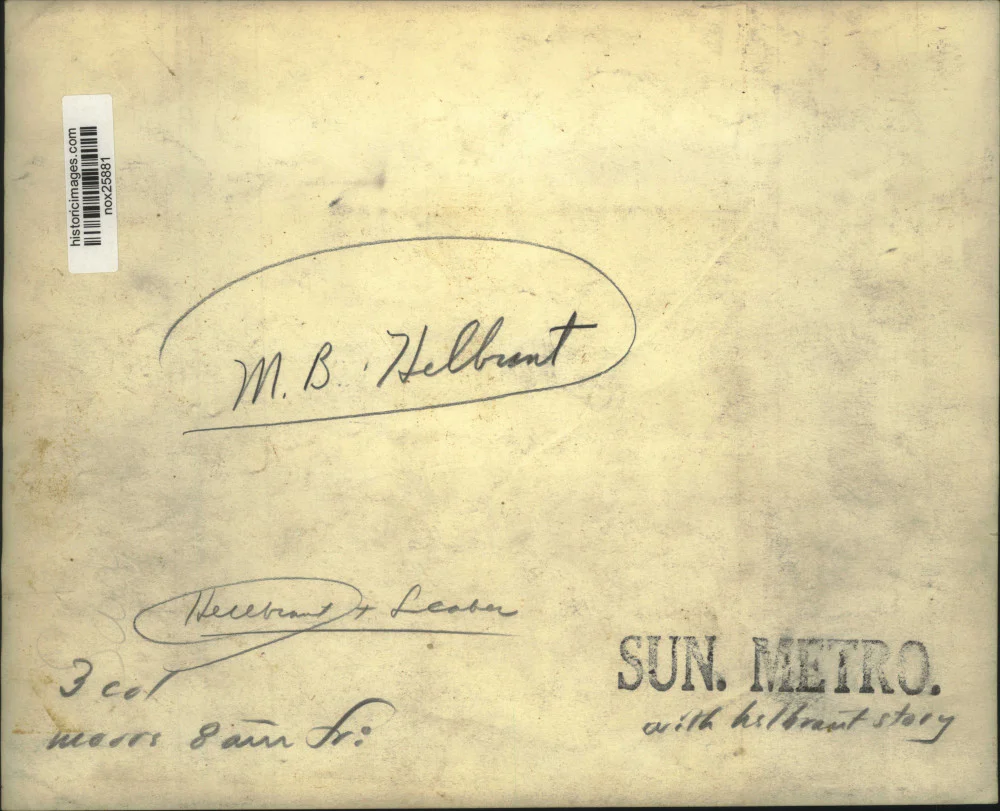 historicimages.com
nox25881
M. B. Helbrant
Hellbrant + Leaber
3 col
moors 8 am Fri
SUN. METRO.
with helbrant story